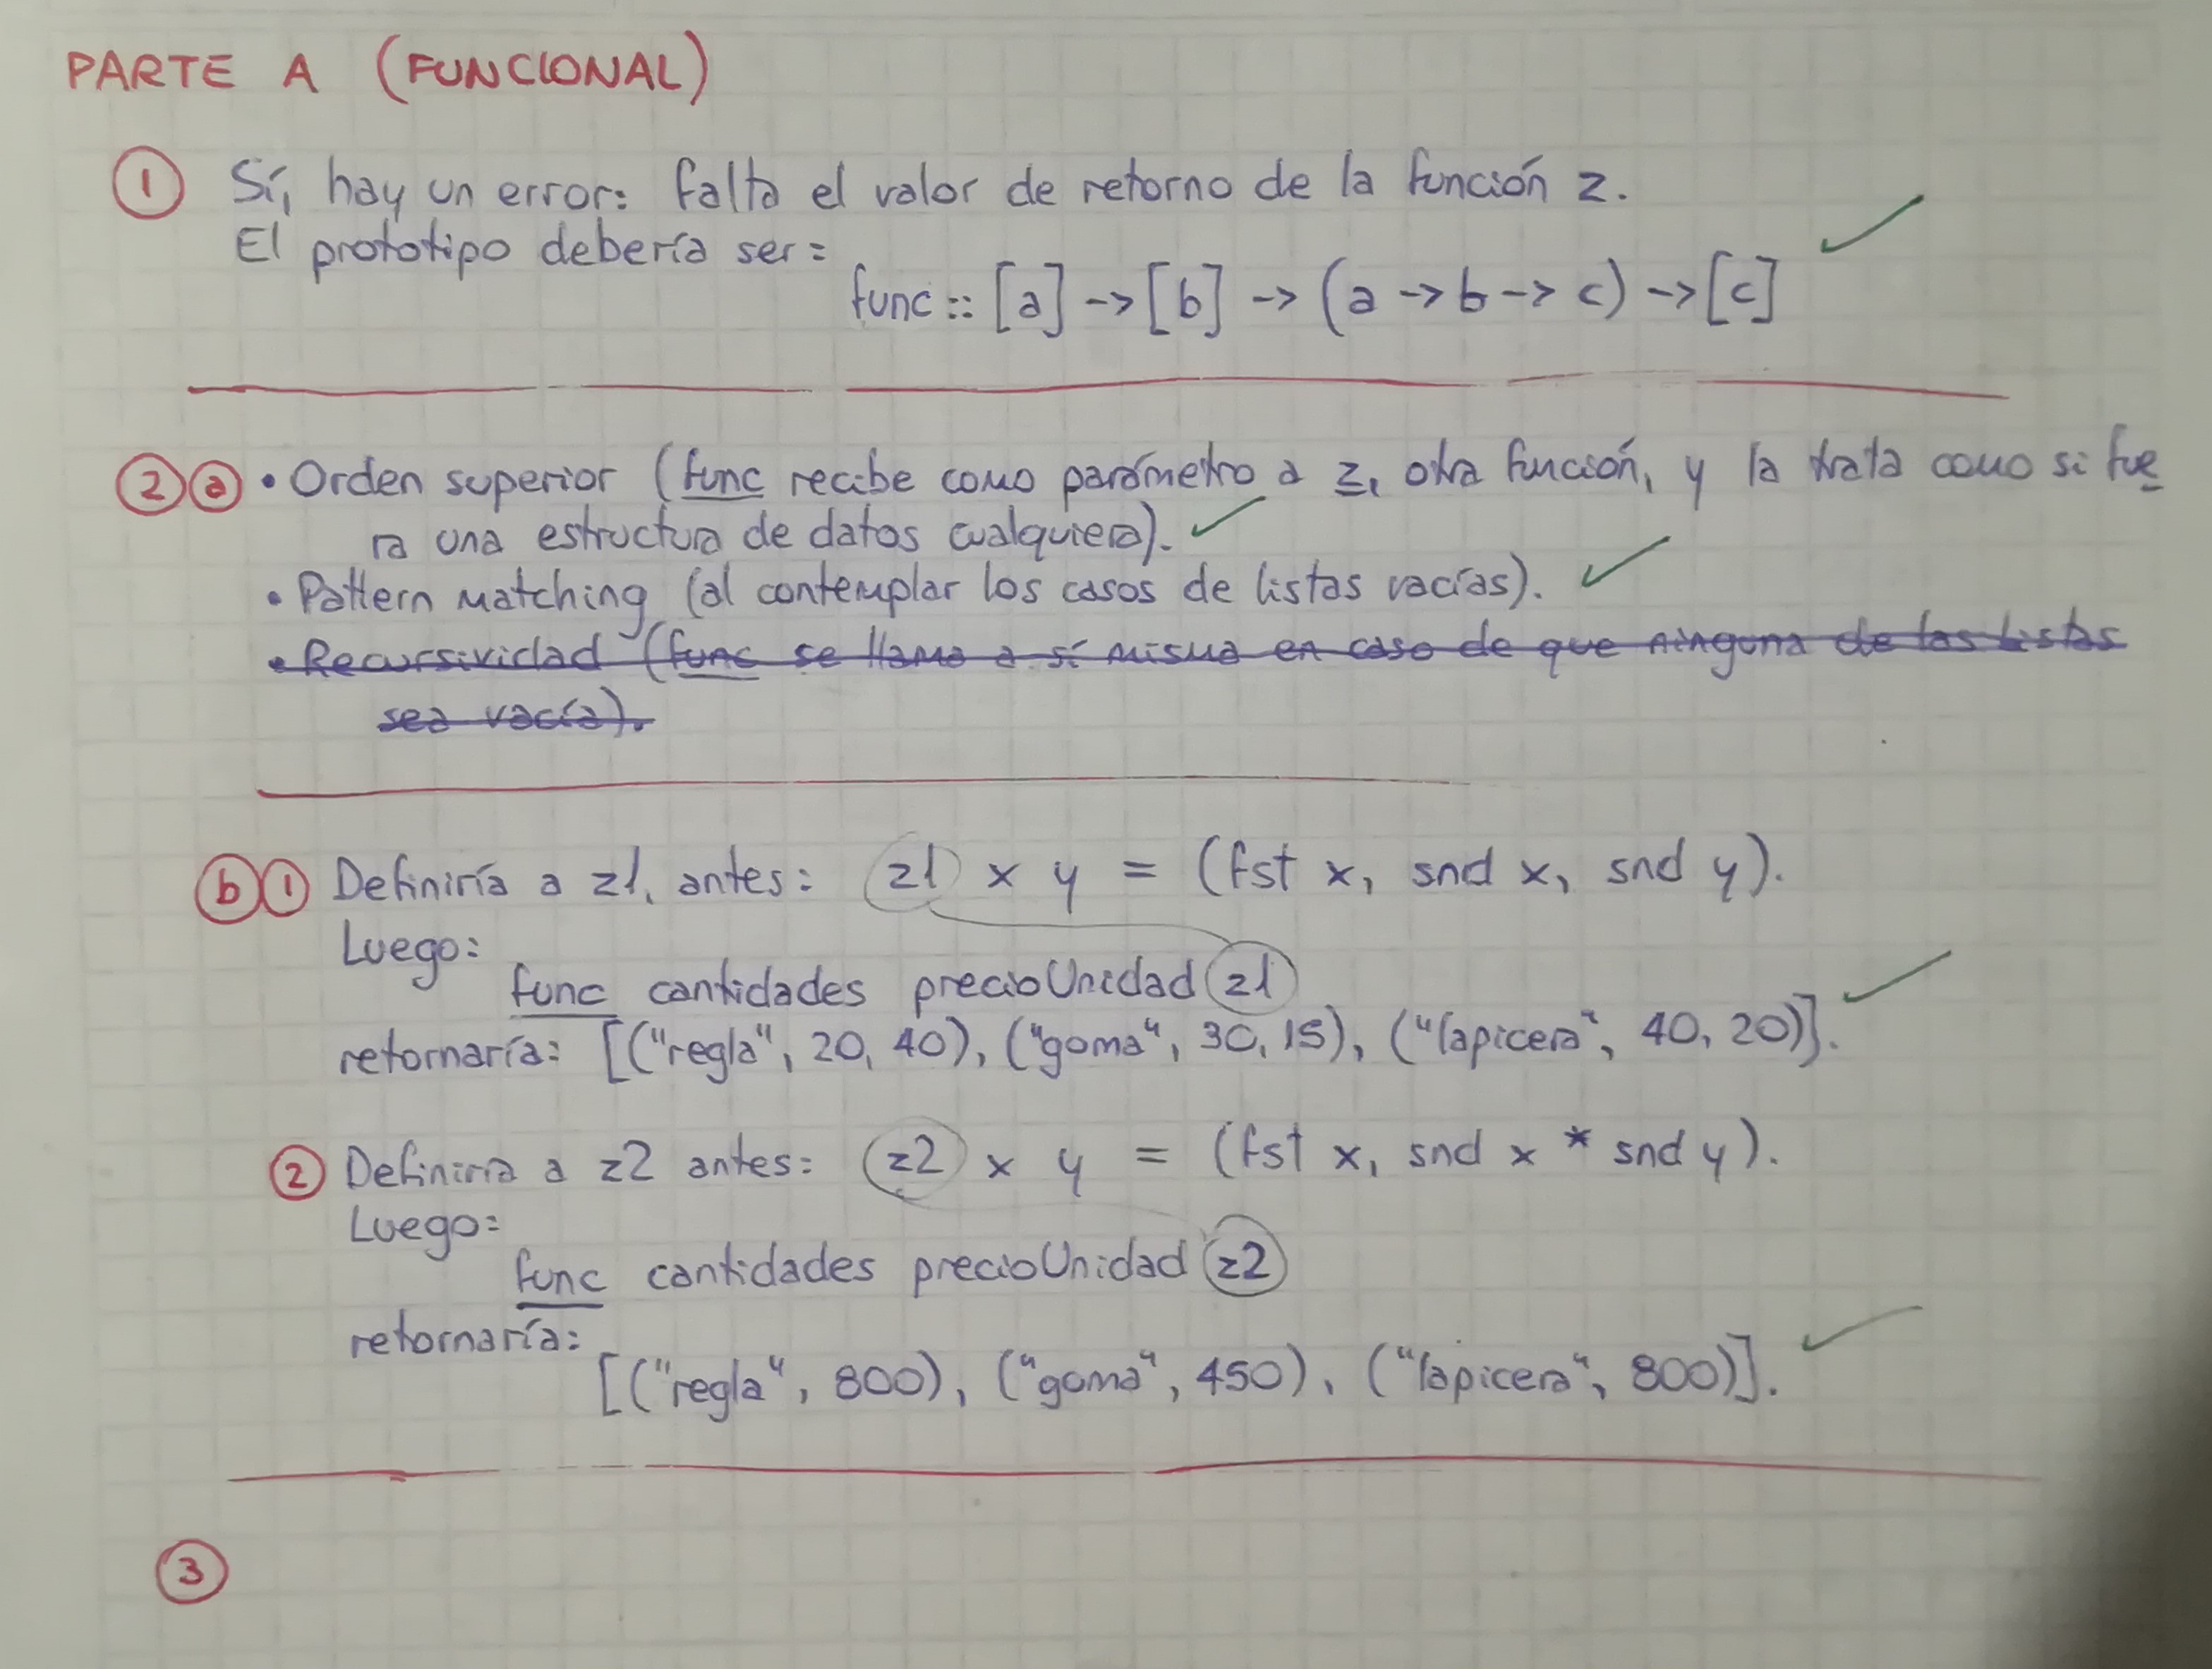 PARTE A (FUNCIONAL)
1 Sí, hay un error: falta el valor de retorno de la función z.
El prototipo debería ser:
func :: [a] -> [b] -> (a -> b -> c) -> [c]
2 a • Orden superior (func recibe como parámetro a z, otra función, y la trata como si fue
ra una estructura de datos cualquiera).
• Pattern matching (al contemplar los casos de listas vacías).
• Recursividad (func se llama a sí misma en caso de que ninguna de las listas
sea vacía).
b 1 Definiría a z1, antes: z1 x y = (fst x, snd x, snd y).
Luego:
func cantidades precioUnidad z1
retornaría: [("regla", 20, 40), ("goma", 30, 15), ("lapicera", 40, 20)].
2 Definiría a z2 antes: z2 x y = (fst x, snd x * snd y).
Luego:
func cantidades precioUnidad z2
retornaría:
[("regla", 800), ("goma", 450), ("lapicera", 800)].
3